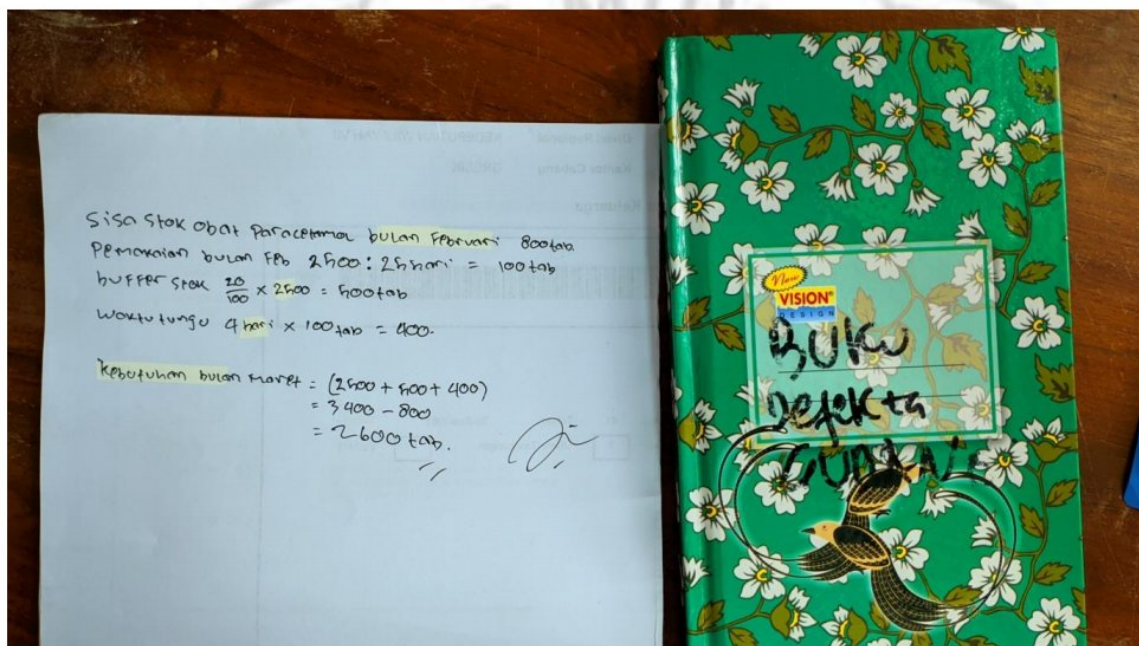 Sisa Stok obat Paracetamol bulan Februari 800 tab.
Pemakaian bulan Feb 2500 : 25 hari = 100 tab
buffer stok 20/100 × 2500 = 500 tab
Waktu tunggu 4 hari × 100 tab = 400.
Kebutuhan bulan Maret = (2500 + 500 + 400)
= 3400 - 800
= 2600 tab.
New
VISION®
DESIGN
BUKU
Defekta
GUDANG